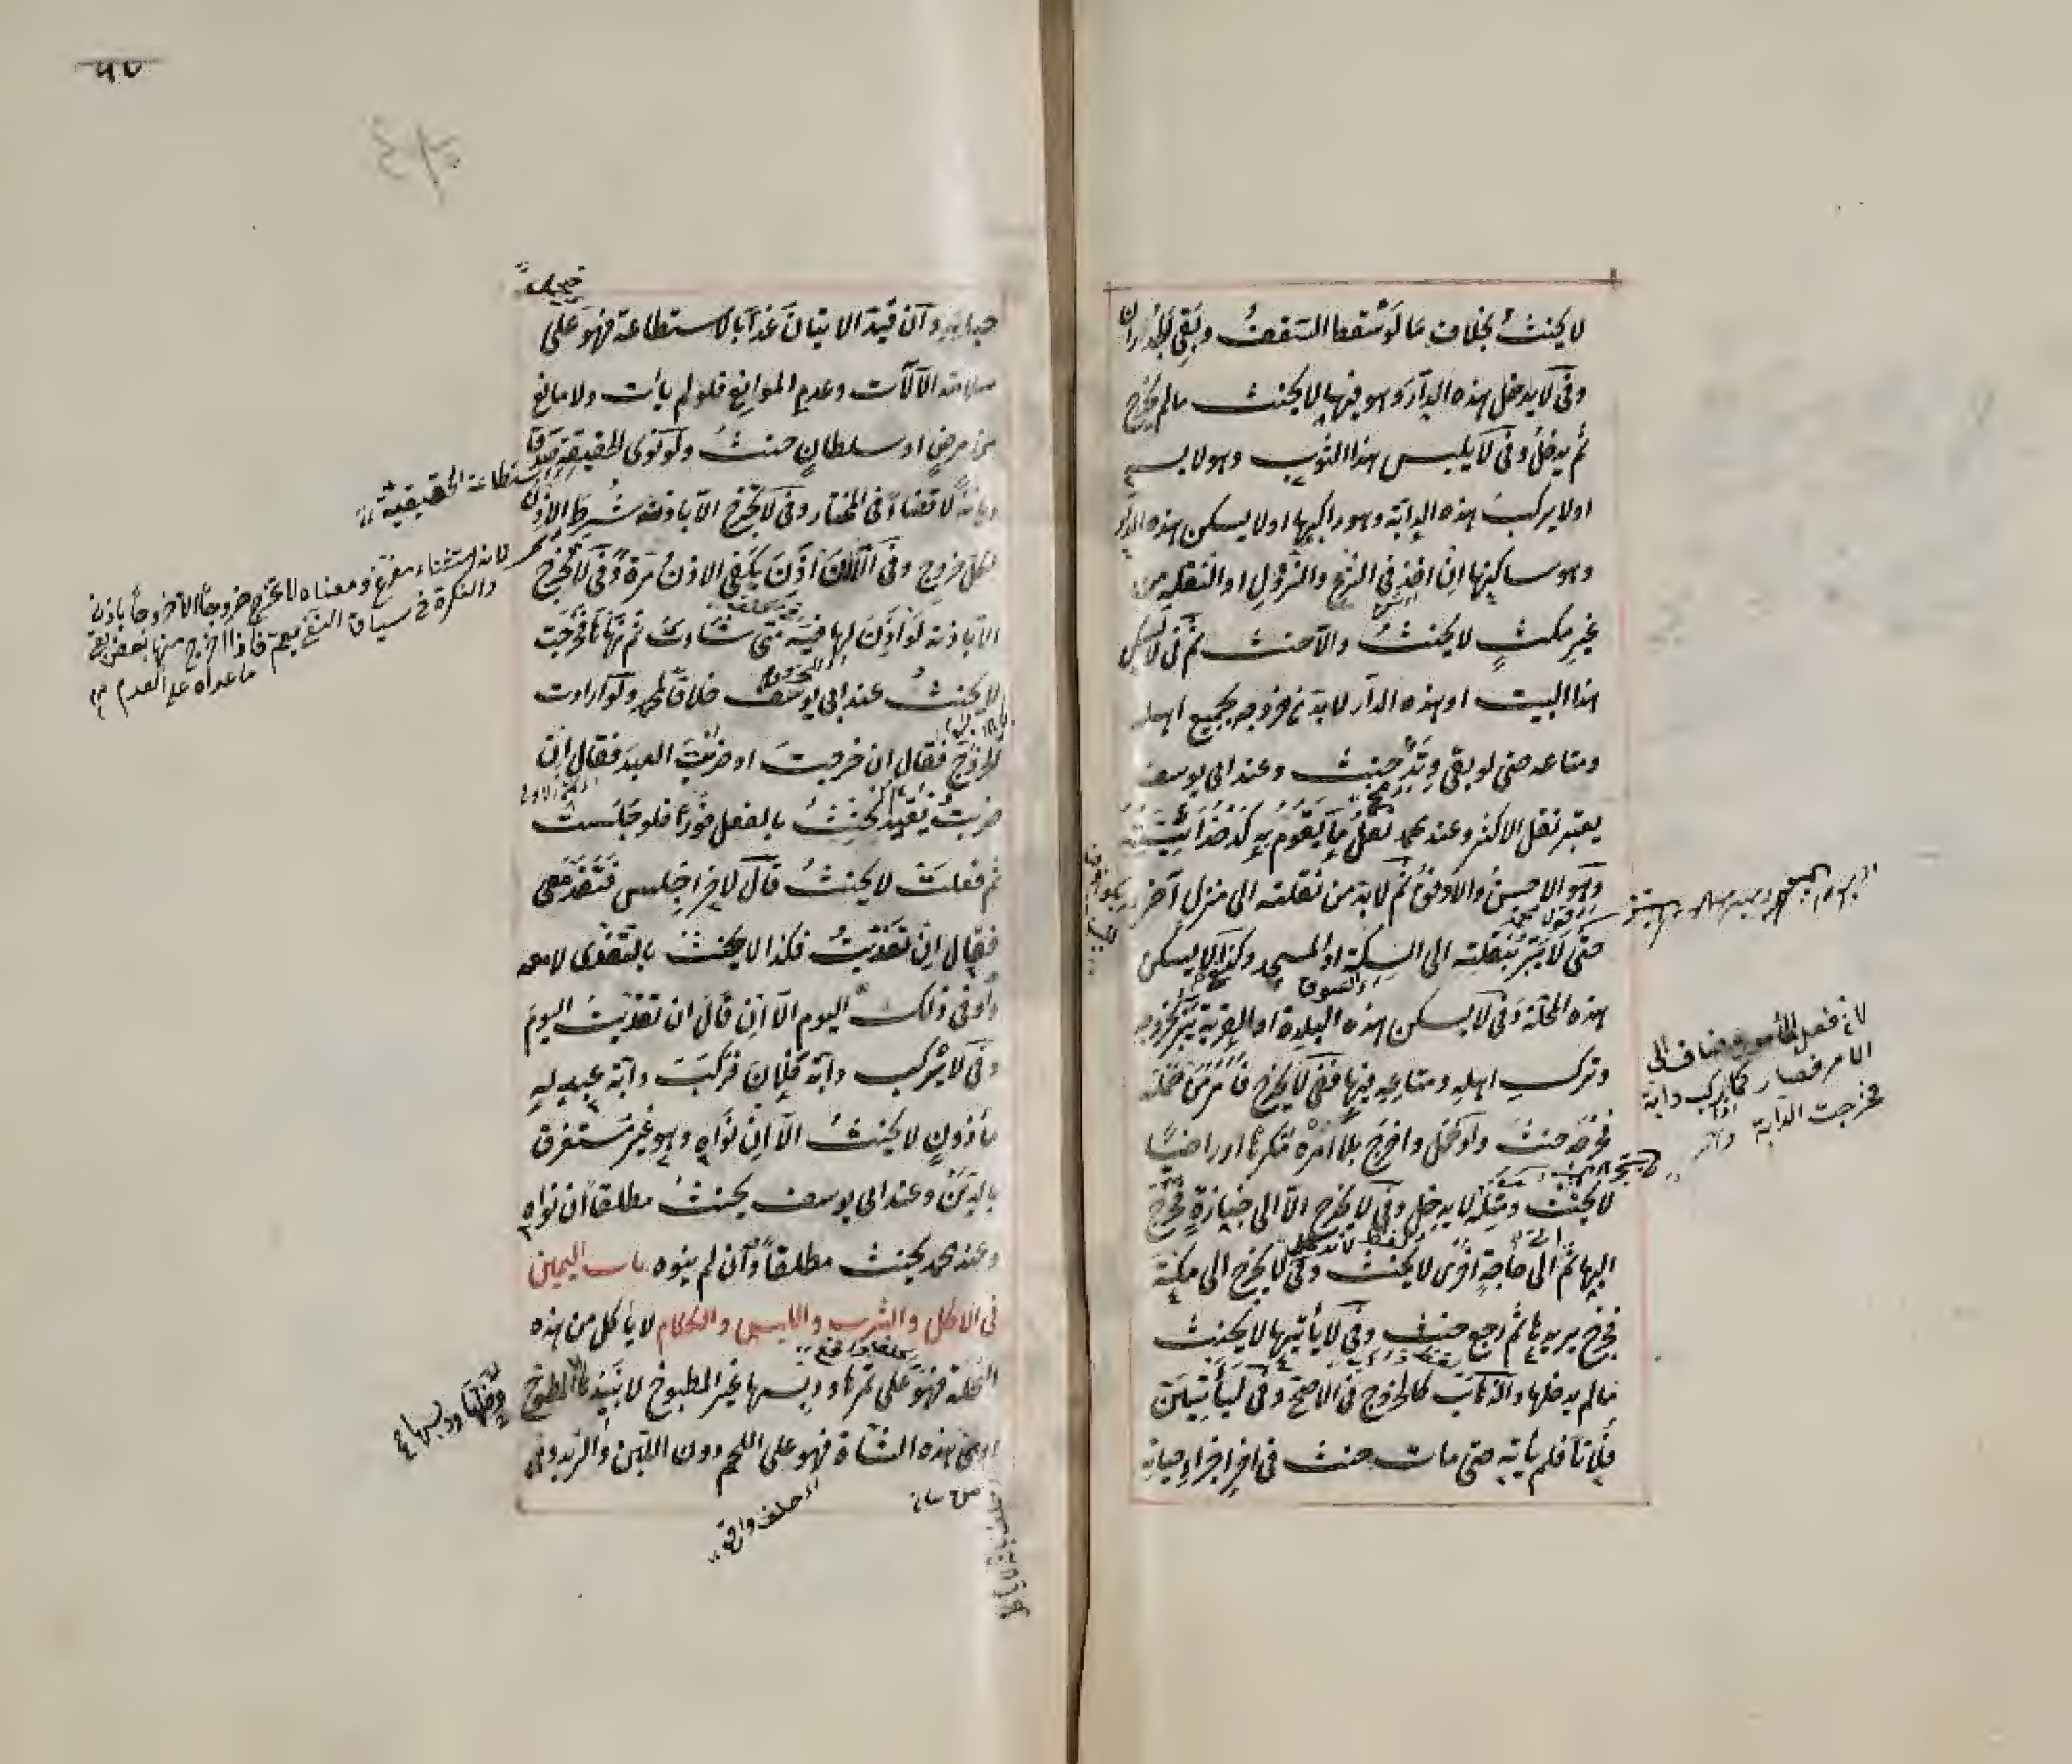 لا يحنث بخلاف ما لو سقط السقف وبقي الجدران
وفي لا يدخل هذه الدار وهو فيها لا يحنث ما لم يخرج
ثم يدخل وفي لا يلبس هذا الثوب وهو لابسه
او لا يركب هذه الدابة وهو راكبها او لا يسكن هذه الدار
وهو ساكنها ان اخذ في النزع والنزول او النقلة من
غير مكث لا يحنث والا حنث ثم في لا يسكن
هذا البيت او هذه الدار لابد من خروجه بجميع اهله
ومتاعه حتى لو بقي وتد حنث وعند ابي يوسف
يعتبر نقل الاكثر وعند محمد نقل ما يقوم به كدخدائيته
وهو الاحسن والارفق ثم لابد من نقلته الى منزل آخر
حتى لا يبر بنقلته الى السكة او المسجد وكذا لا يسكن
هذه المحلة وفي لا يسكن هذه البلدة او القرية يبر بخروجه
وترك اهله ومتاعه فيها ففي لا يخرج فامر من حمله
فاخرجه حنث ولو حمل واخرج بلا امره مكرها او راضيا
لا يحنث ومثله لا يدخل وفي لا يخرج الا الى جنازة فخرج
اليها ثم اتى حاجة اخرى لا يحنث وفي لا يخرج الى مكة
فخرج يريدها ثم رجع حنث وفي لا يأتيها لا يحنث
ما لم يدخلها والذهاب كالخروج في الاصح وفي ليأتين
فلانا فلم يأته حتى مات حنث في آخر اجزاء حياته
لان فعل المأمور مضاف الى
الامر فصار كما ركب دابة
فخرجت الدابة
٩٧
حياته وان قيد الاتيان غدا بالاستطاعة فهو على
سلامة الآلات وعدم الموانع فلو لم يأت ولا مانع
من مرض او سلطان حنث ولو نوى الحقيقة صدق
ديانة لا قضاء في المختار وفي لا تخرج الا باذنه شرط الاذن
لكل خروج وفي الا ان اذن يكفي الاذن مرة وفي لا تخرج
الا باذنه لو اذن لها فيه متى شاءت ثم نهاها فخرجت
لا يحنث عند ابي يوسف خلافا لمحمد ولو ارادت
الخروج فقال ان خرجت او ضرب العبد فقال ان
ضربت تقيد الحنث بالفعل فورا فلو جلست
ثم فعلت لا يحنث قال لآخر اجلس فتغد معي
فقال ان تغديت فكذا لا يحنث بالتغدي لا معه
ولو في ذلك اليوم الا ان قال ان تغديت اليوم
وفي لا يركب دابة فلان فركب دابة عبد له
مأذون لا يحنث الا ان نواه وهو غير مستغرق
بالدين وعند ابي يوسف يحنث مطلقا ان نواه
وعند محمد يحنث مطلقا وان لم ينوه باب اليمين
في الاكل والشرب واللبس والكلام لا يأكل من هذه
النخلة فهو على ثمرها ودبسها غير المطبوخ لا نبيذها المطبوخ
او من هذه الشاة فهو على اللحم دون اللبن والزبد وفي
الاستطاعة الحقيقية
لانه استثناء مفرغ ومعناه لا تخرج خروجا الا خروجا باذن
والنكرة في سياق النفي يعم فاذا اخرج منها بعض بقي
ما عداه على العدم